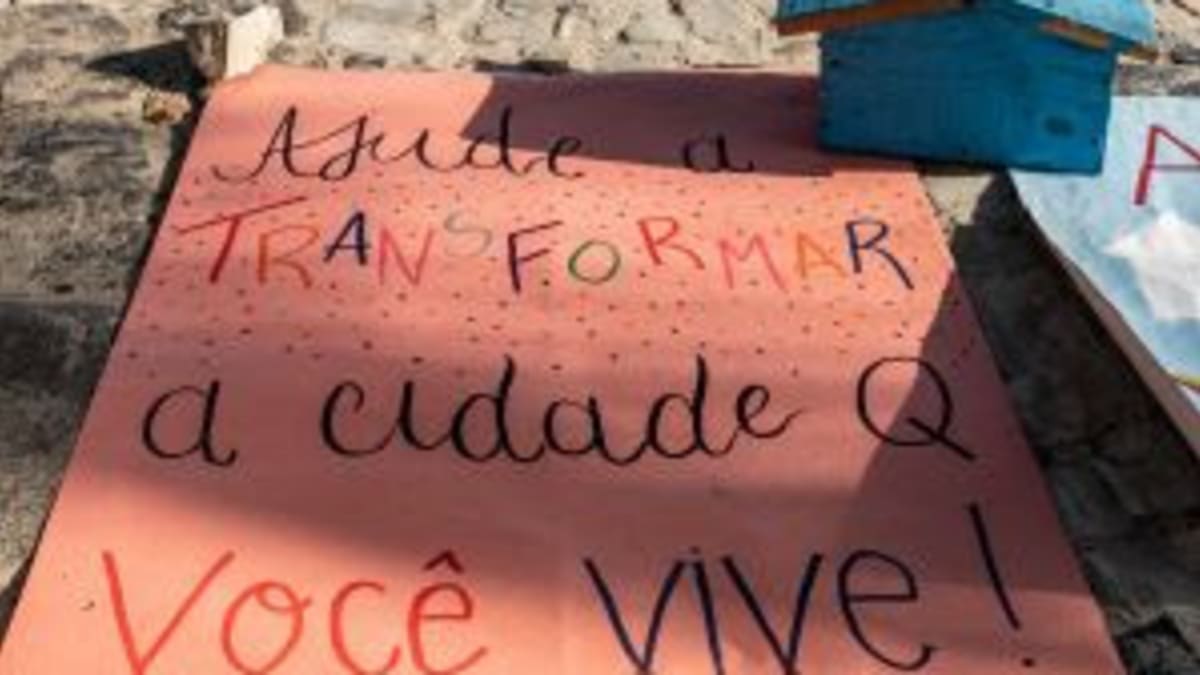 Ajude a
TRANSFORMAR
a cidade Q
Você vive!
A